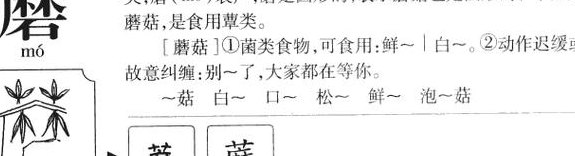 蘑
mó
蘑菇,是食用蕈类。
[蘑菇]①菌类食物,可食用:鲜～｜白～。②动作迟缓或
故意纠缠:别～了,大家都在等你。
～菇 白～ 口～ 松～ 鲜～ 泡～菇